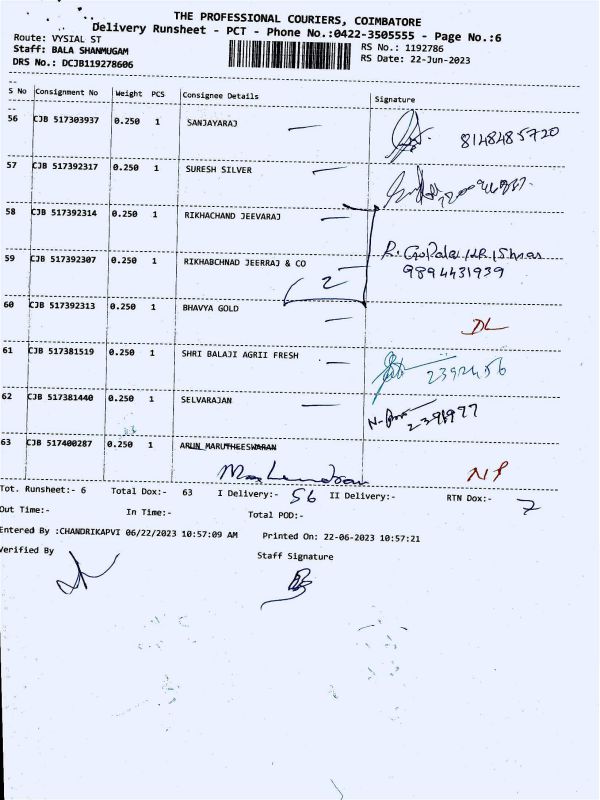 THE PROFESSIONAL COURIERS, COIMBATORE
Delivery Runsheet - PCT - Phone No.:0422-3505555 - Page No.:6
Route: VYSIAL ST
RS No.: 1192786
Staff: BALA SHANMUGAM
RS Date: 22-Jun-2023
DRS No.: DCJB119278606
S No Consignment No Weight PCS Consignee Details Signature
56 CJB 517303937 0.250 1 SANJAYARAJ 8148485720
57 CJB 517392317 0.250 1 SURESH SILVER
58 CJB 517392314 0.250 1 RIKHACHAND JEEVARAJ
59 CJB 517392307 0.250 1 RIKHABCHNAD JEERRAJ & CO 9894431939
2
60 CJB 517392313 0.250 1 BHAVYA GOLD DL
61 CJB 517381519 0.250 1 SHRI BALAJI AGRII FRESH 2392456
62 CJB 517381440 0.250 1 SELVARAJAN
63 CJB 517400287 0.250 1 ARUN MARUTHEESWARAN
Tot. Runsheet:- 6 Total Dox:- 63 I Delivery:- 56 II Delivery:- RTN Dox:- 7
Out Time:- In Time:- Total POD:-
Entered By :CHANDRIKAPVI 06/22/2023 10:57:09 AM Printed On: 22-06-2023 10:57:21
Verified By Staff Signature